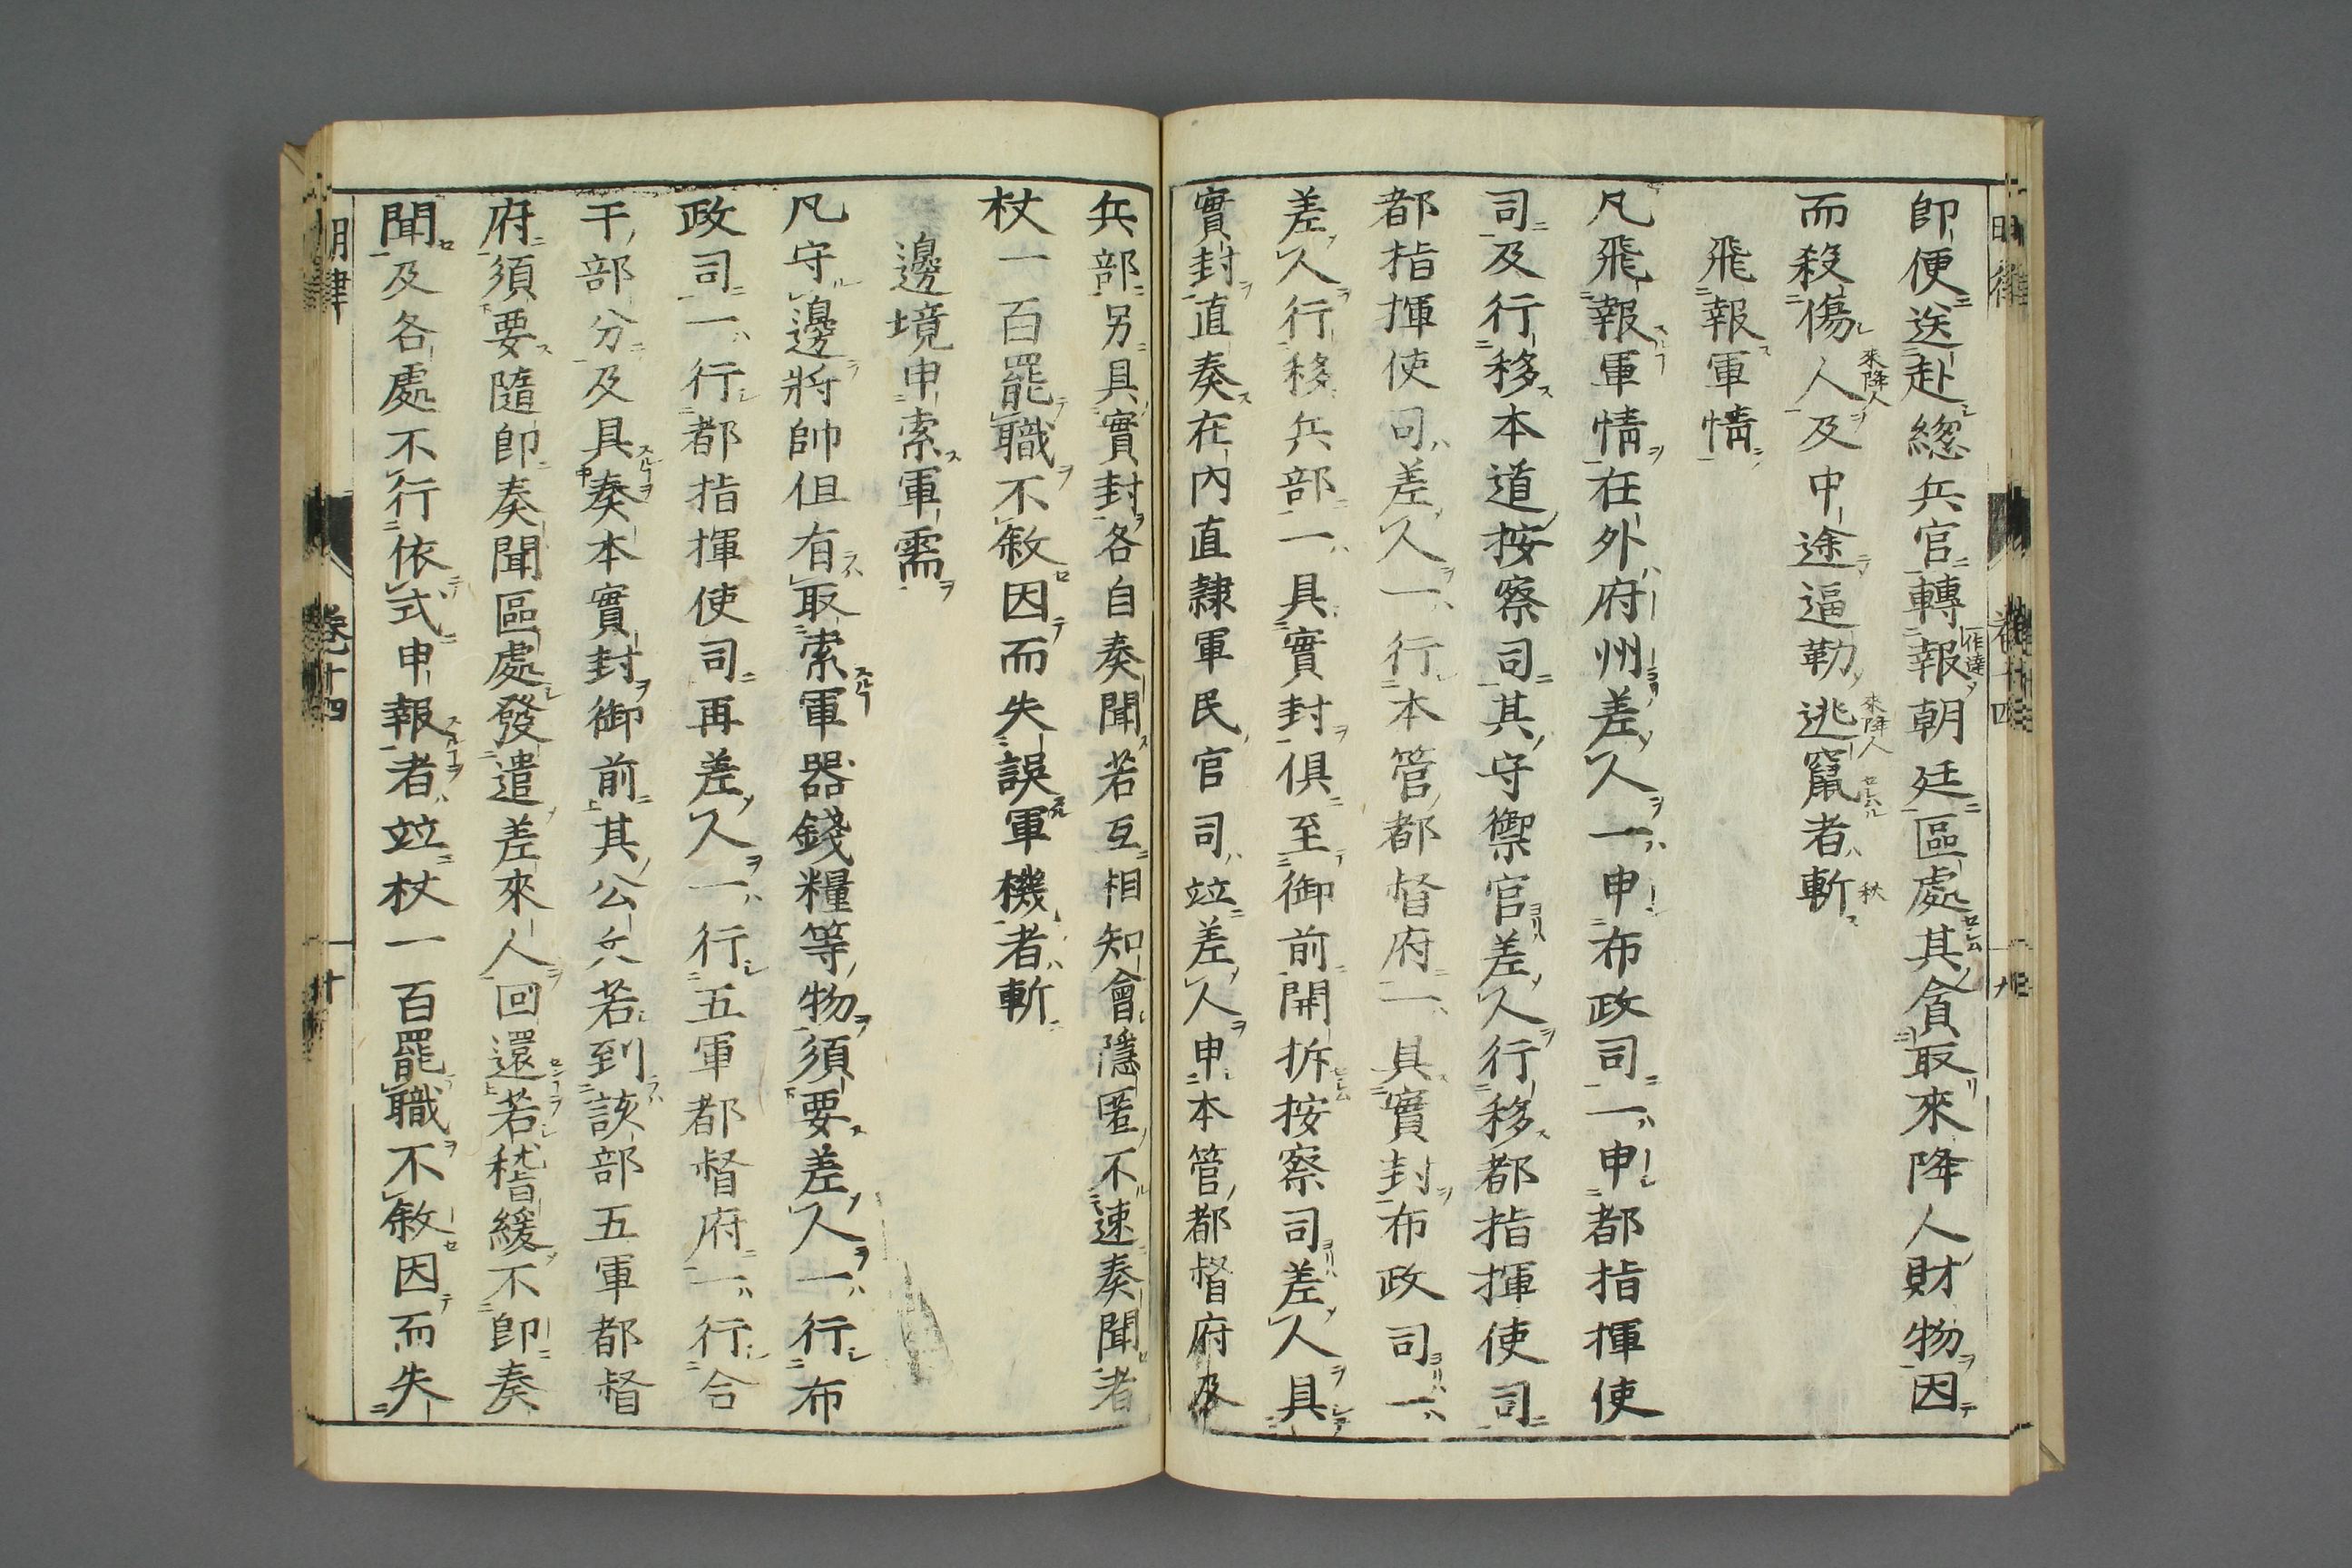 即便送赴總兵官轉報朝廷區處其貪取來降人財物因
而殺傷人及中途逼勒逃竄者斬
飛報軍情
凡飛報軍情在外府州差人一申布政司一申都指揮使
司及行移本道按察司其守禦官差人行移都指揮使司
都指揮使司差人一行本管都督府一具實封布政司一
差人行移兵部一具實封俱至御前開拆按察司差人具
實封直奏在內直隷軍民官司竝差人申本管都督府及
兵部另具實封各自奏聞若互相知會隱匿不速奏聞者
杖一百罷職不敘因而失誤軍機者斬
邊境申索軍需
凡守邊將帥但有取索軍器錢糧等物須要差人一行布
政司一行都指揮使司再差人一行五軍都督府一行合
干部分及具奏本實封御前其公文若到該部五軍都督
府須要隨即奏聞區處發遣差來人回還若稽緩不即奏
聞及各處不行依式申報者竝杖一百罷職不敘因而失
明律 卷十四 廿